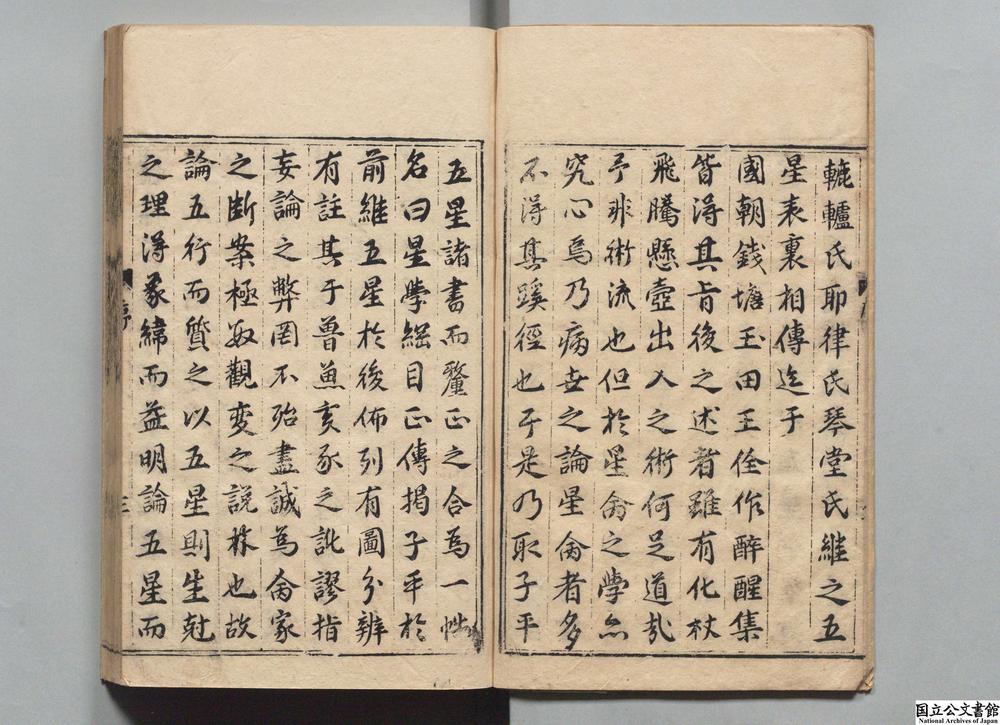 轆轤氏耶律氏琴堂氏継之五
星表裏相傳迄于
國朝錢塘玉田王佺作醉醒集
皆淂其㫖後之述者雖有化杖
飛騰懸壺出入之術何足道㢤
予非術流也但於星禽之學亦
究心焉乃病世之論星禽者多
不淂其蹊徑也于是乃取子平
五星諸書而釐正之合爲一帙
名曰星學綱目正傳揭子平於
前継五星於後佈列有圖分辨
有註其于魯魚亥豕之訛謬指
妄論之弊罔不殆盡誠爲禽家
之断案極數觀變之説棶也故
論五行而質之以五星則生尅
之理淂彖緯而益明論五星而
序
三
国立公文書館
National Archives of Japan